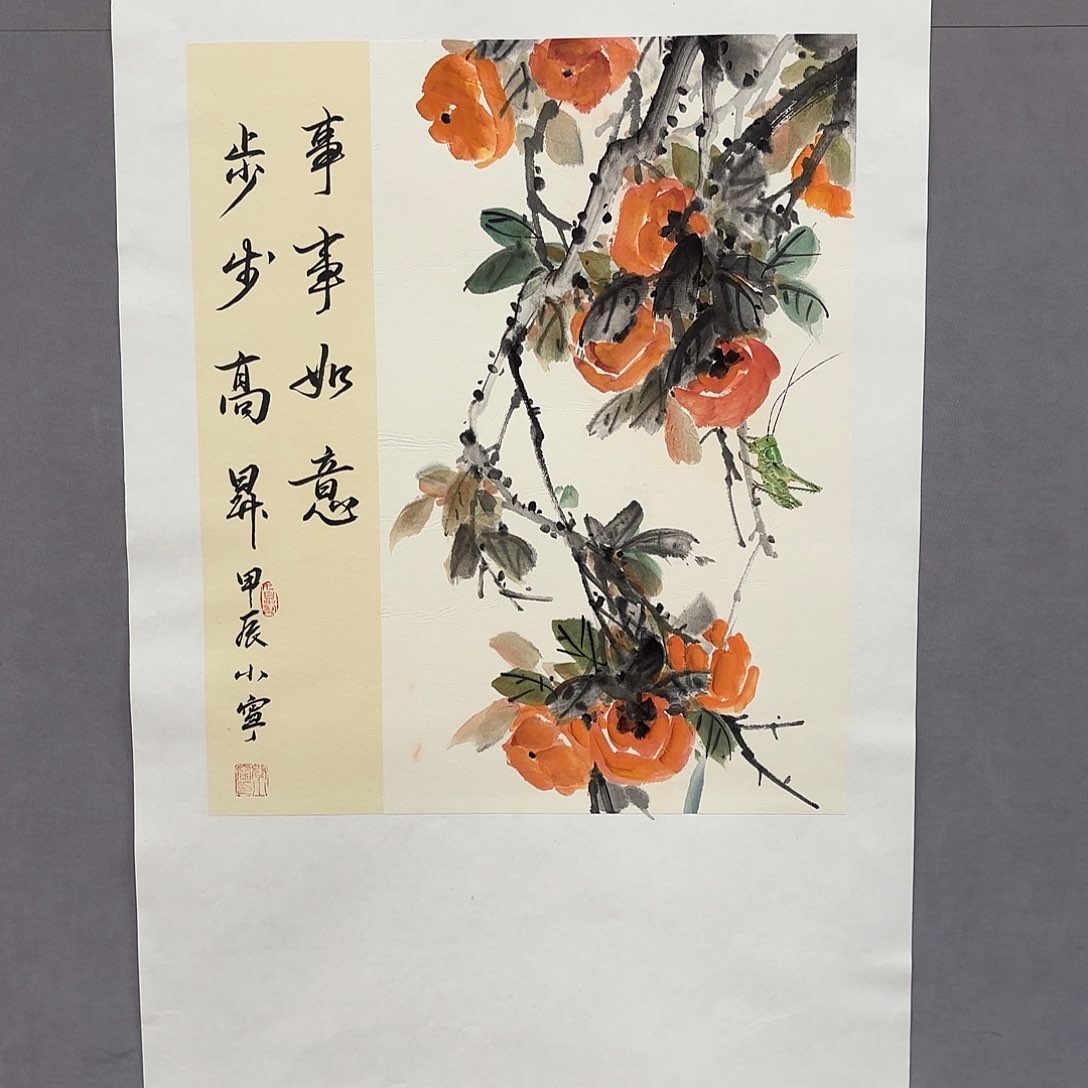 事事如意
步步高昇
甲辰小寧